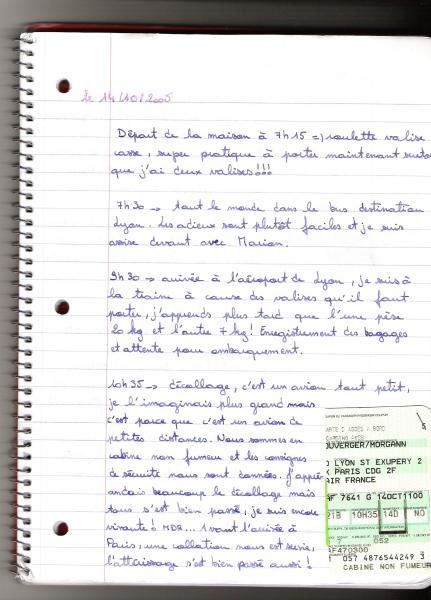 Le 14/10/2005
Départ de la maison à 7h15 => roulette valise
casse, super pratique à porter maintenant surtout
que j'ai deux valises!!!
7h30 → tout le monde dans le bus destination
Lyon. Les adieux sont plutôt faciles et je suis
assise devant avec Marion.
9h30 → arrivée à l'aéroport de Lyon, je suis à
la traine à cause des valises qu'il faut
porter, j'apprends plus tard que l'une pèse
20 kg et l'autre 7 kg! Enregistrement des bagages
et attente pour embarquement.
10h35 → décollage, c'est un avion tout petit,
je l'imaginais plus grand mais
c'est parce que c'est un avion de
petites distances. Nous sommes en
cabine non fumeur et les consignes
de sécurité nous sont données. J'appré-
andais beaucoup le décollage mais
tout s'est bien passé, je suis encore
vivante! MDR... Avant l'arrivée à
Paris, une collation nous est servie,
l'atterissage s'est bien passé aussi!
CARTE D'ACCES / BORD
OUVERGER/MORGANN
LYON ST EXUPERY 2
PARIS CDG 2F
AIR FRANCE
AF 7641 G 14OCT 1100
21B 10H35 14D NO
7 052
AF470300
057 4876544249 3
CABINE NON FUMEUR